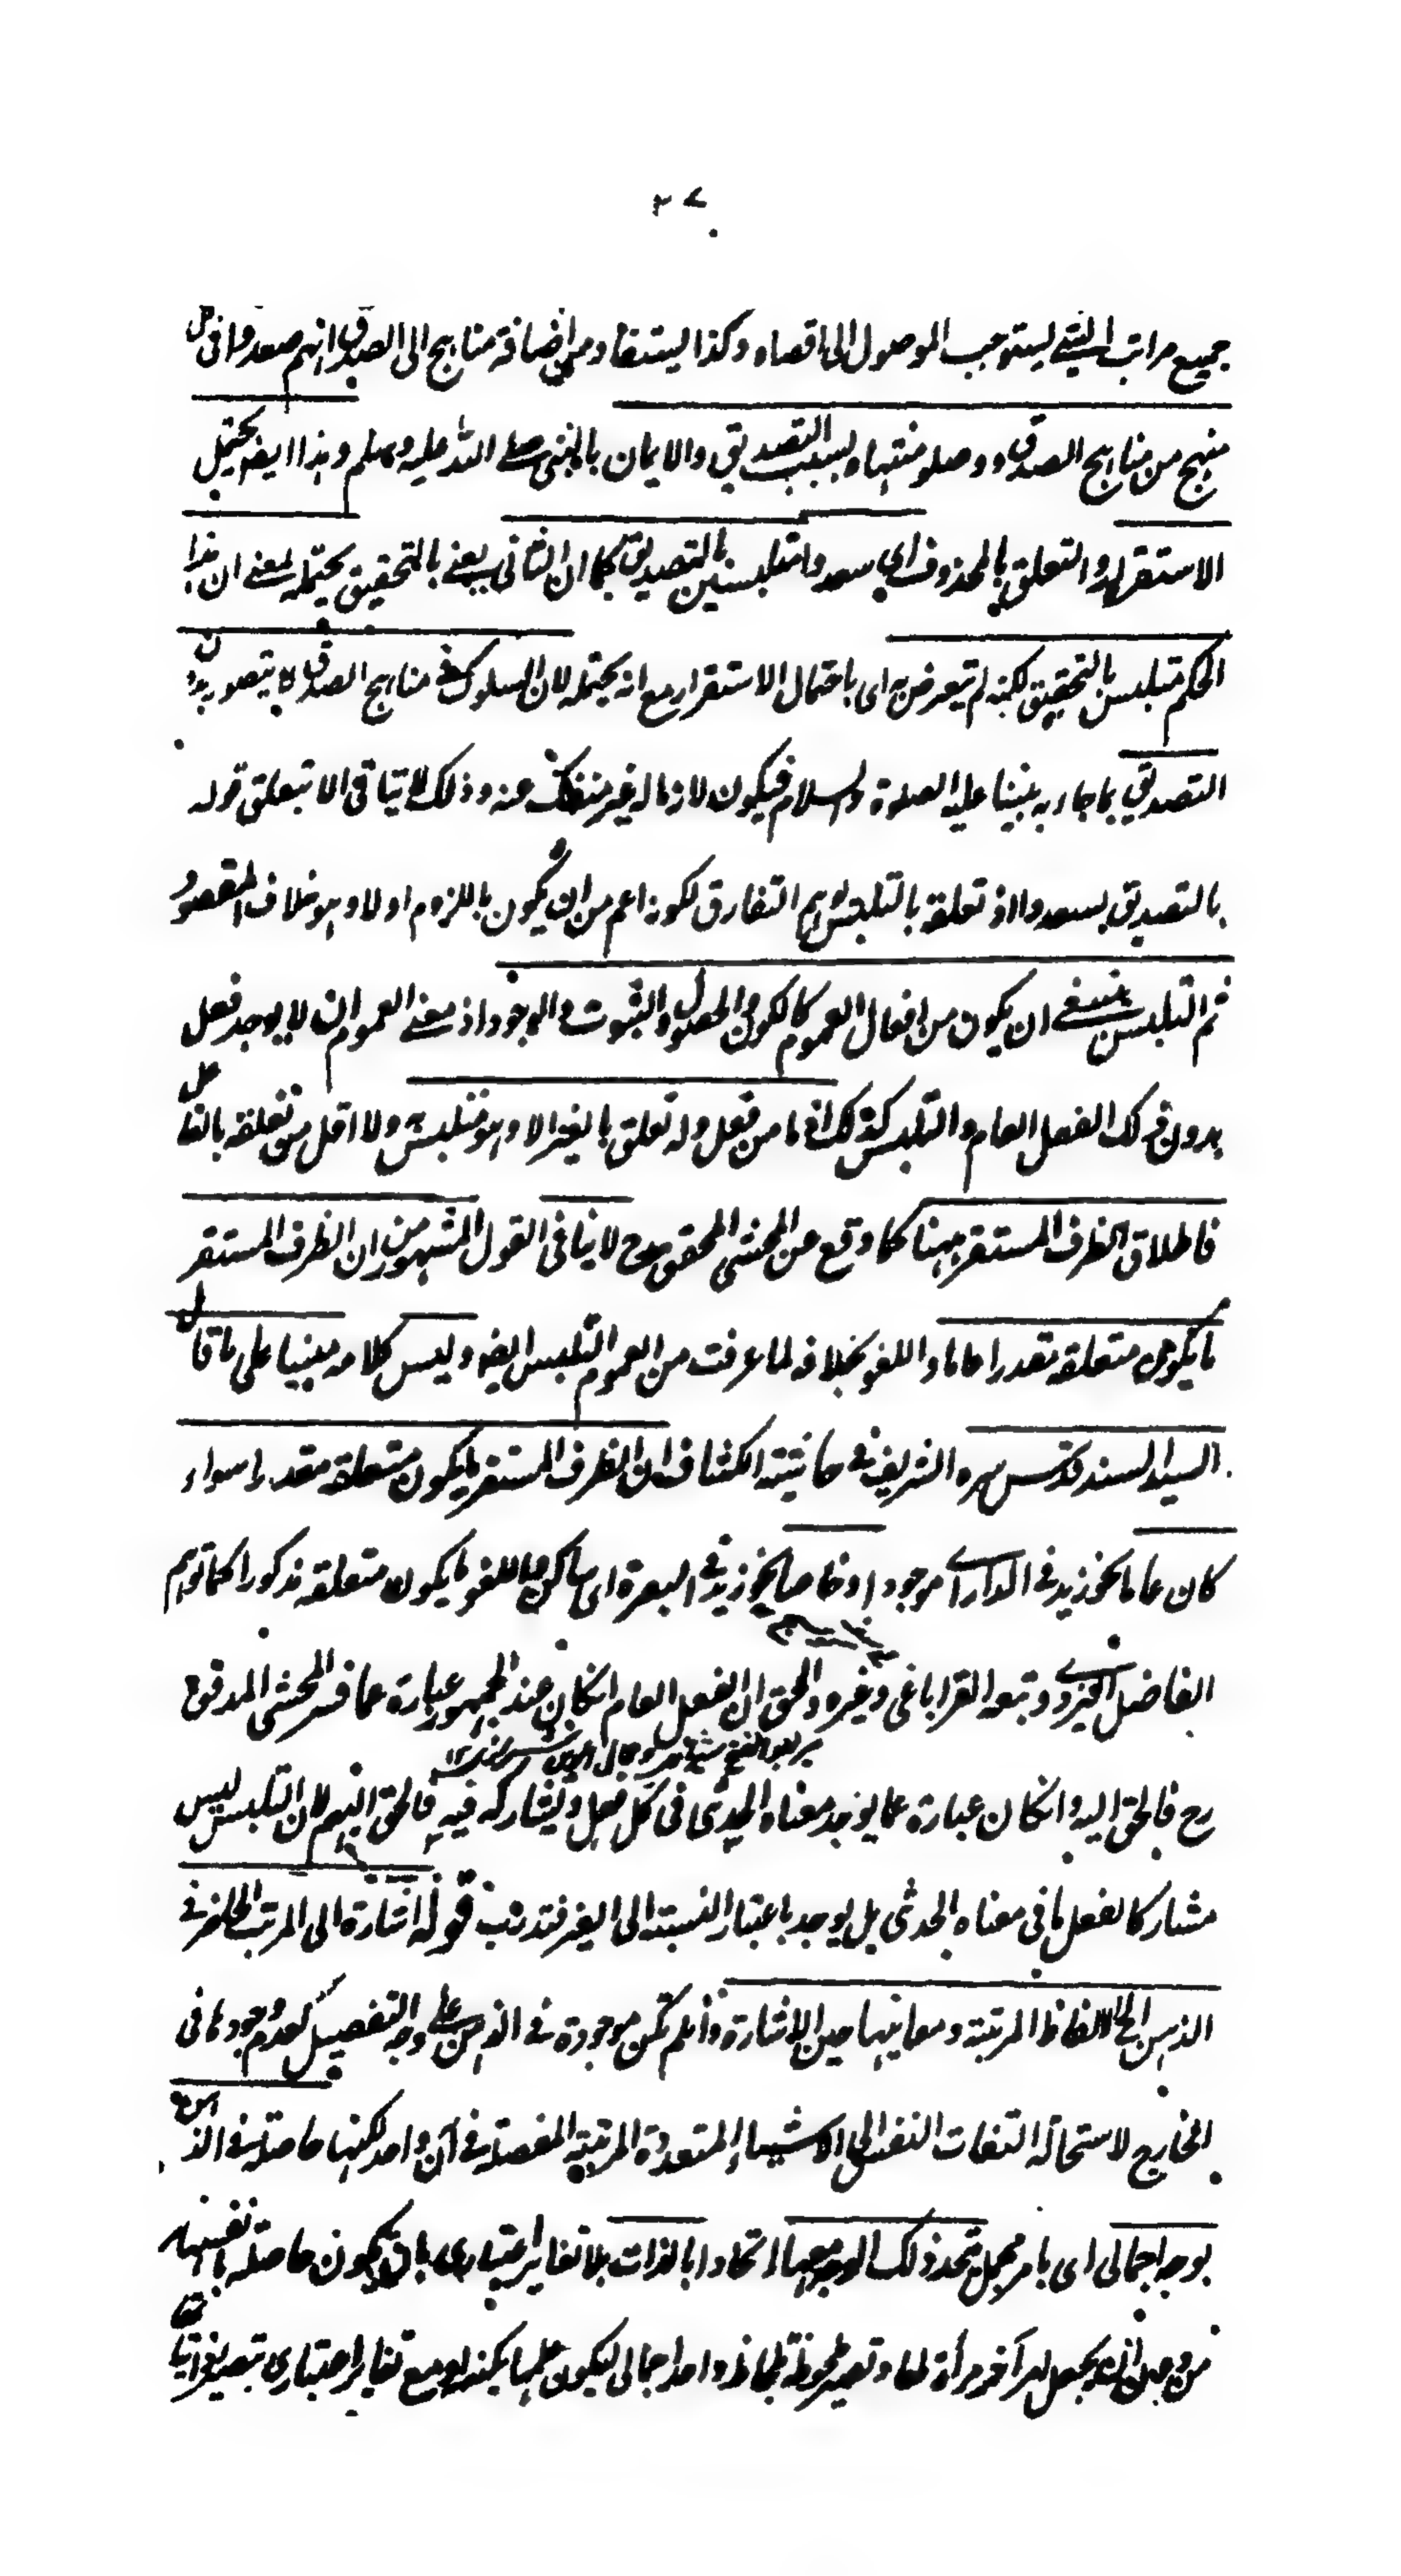 ٢٧
جميع مراتب الشئ ليستوجب الوصول الى اقصاه وكذا يستفاد من اضافة مناهج الى الصدق انهم صعدوا فى كل
منهج من مناهج الصدق ووصلو منتهاه بسبب التصديق والايمان بالنبى صلى الله عليه وسلم وهذا ايضا يحتمل
الاستقرار والتعلق بالمحذوف اى سعدوا متلبسين بالتصديق كما ان الثانى يعنى بالتحقيق يحتمله بمعنى ان هذا
الحكم متلبس بالتحقيق لكنه لم يتعرض به اى باحتمال الاستقرار مع انه يحتمله لان السلوك فى مناهج الصدق لا يتصور بدون
التصديق بما جاء به نبينا عليه الصلوة والسلام فيكون لازما له غير منفك عنه وذلك لا يتاقى الا بتعلق قوله
بالتصديق بسعدوا اذ تعلقه بالتلبس يوهم التفارق لكونه اعم من ان يكون باللزوم او لا وهو خلاف المقصود
ثم التلبس ينبغى ان يكون من افعال العموم كالكون والحصول والثبوت والوجود اذ معنى العموم ان لا يوجد فعل
بدون ذلك الفعل العام والتلبس كذلك اذ ما من فعل وله تعلق بالغير الا وهو متلبس ولا اقل من تعلقه بالفاعل
فاطلاق الظرف المستقر ههنا كما وقع عن المحشى المحقق مدح لا ينافى القول المشهور من ان الظرف المستقر
ما يكون متعلقه مقدرا عاما واللغو بخلافه لما عرفت من العموم التلبس ايضا وليس كلامه مبنيا على ما قال
السيد السند قدس سره الشريف فى حاشية الكشاف ان الظرف المستقر ما يكون متعلقه مقدرا سواء
كان عاما نحو زيد فى الدار اى موجود او خاصا نحو زيد فى البصرة اى ساكن واللغو ما يكون متعلقه مذكورا كما توهم
الفاضل اليزدى وتبعه القراباغى وغيره والحق ان الفعل العام ان كان عند الجمهور عبارة عما فسر المحشى المدقق
رح فالحق اليه وان كان عبارة عما يوجد معناه الحدثى فى كل فعل ويشاركه فيه فالحق اليهم لان التلبس ليس
مشاركا لفعل ما فى معناه الحدثى بل يوجد باعتبار النسبة الى الغير فتدبر قوله اشارة الى المرتب الحاضر فى
الذهن الخ الالفاظ المرتبة ومعانيها حين الاشارة وان لم تكن موجودة فى الذهن على وجه التفصيل كعدم وجودها فى
الخارج لاستحالة التفات النفس الى الاشياء المتعددة المرتبة المفصلة فى آن واحد لكنها حاصلة فى الذهن
بوجه اجمالى اى بامر مجمل متحد ذلك الوجه معها اتحادا بالذات بلا تغاير اعتبارى بان يكون حاصلة بانفسها
من وجه ان يجعل امر آخر مرأة لها وتصير ملحوظة بلحاظ واحد اجمالى ليكون علما بكنهه او مع تغاير اعتبارى